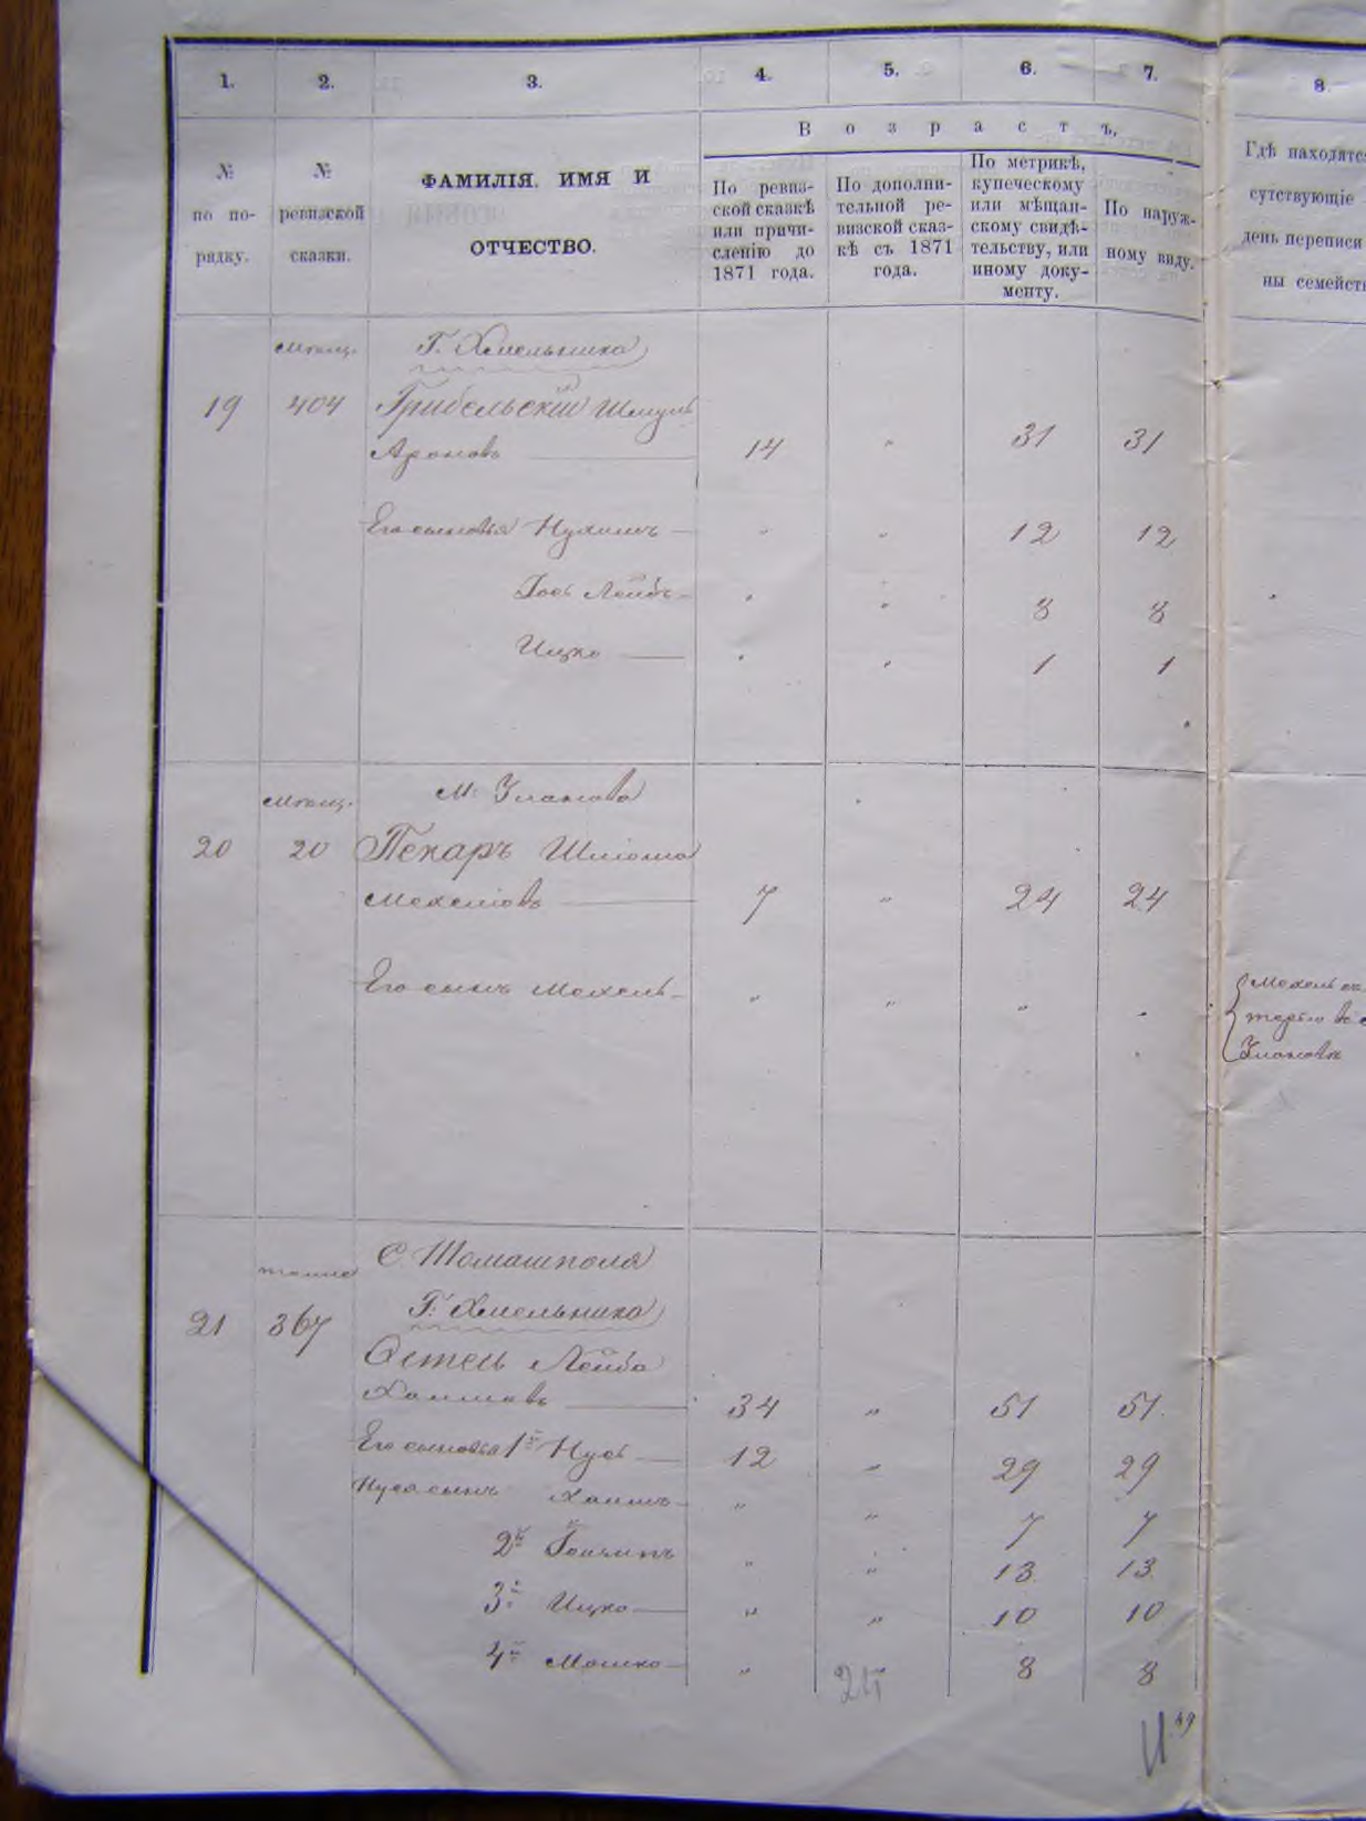 1. 2. 3. 4. 5. 6. 7. 8.
В о з р а с т ъ,
№
по по-
рядку.
№
ревизской
сказки.
ФАМИЛІЯ, ИМЯ И
ОТЧЕСТВО.
По ревиз-
ской сказкѣ
или причи-
сленію до
1871 года.
По дополни-
тельной ре-
визской сказ-
кѣ съ 1871
года.
По метрикѣ,
купеческому
или мѣщан-
скому свидѣ-
тельству, или
иному доку-
менту.
По наруж-
ному виду.
Гдѣ находятся
сутствующіе
день переписи
ны семейств
Г. Хмельника
19 404 Грибельскій Шмуль
Ароновъ 14 " 31 31
Его сыновья Нухимъ " " 12 12
Іось Лейбъ " " 8 8
Ицко " " 1 1
М. Уланова
20 20 Пекаръ Шліома
Мехелювъ 7 " 24 24
Его сынъ Мехель " " "
Мехель
Улановѣ
С. Томашполя
21 367 Г. Хмельника
Остець Лейба
Хаимовъ 34 " 51 51
Его сыновья 1й Нусь 12 " 29 29
Нуся сынъ Хаимъ " " 7 7
2й " " 13 13
3й Ицко " " 10 10
4й Мошко " " 8 8